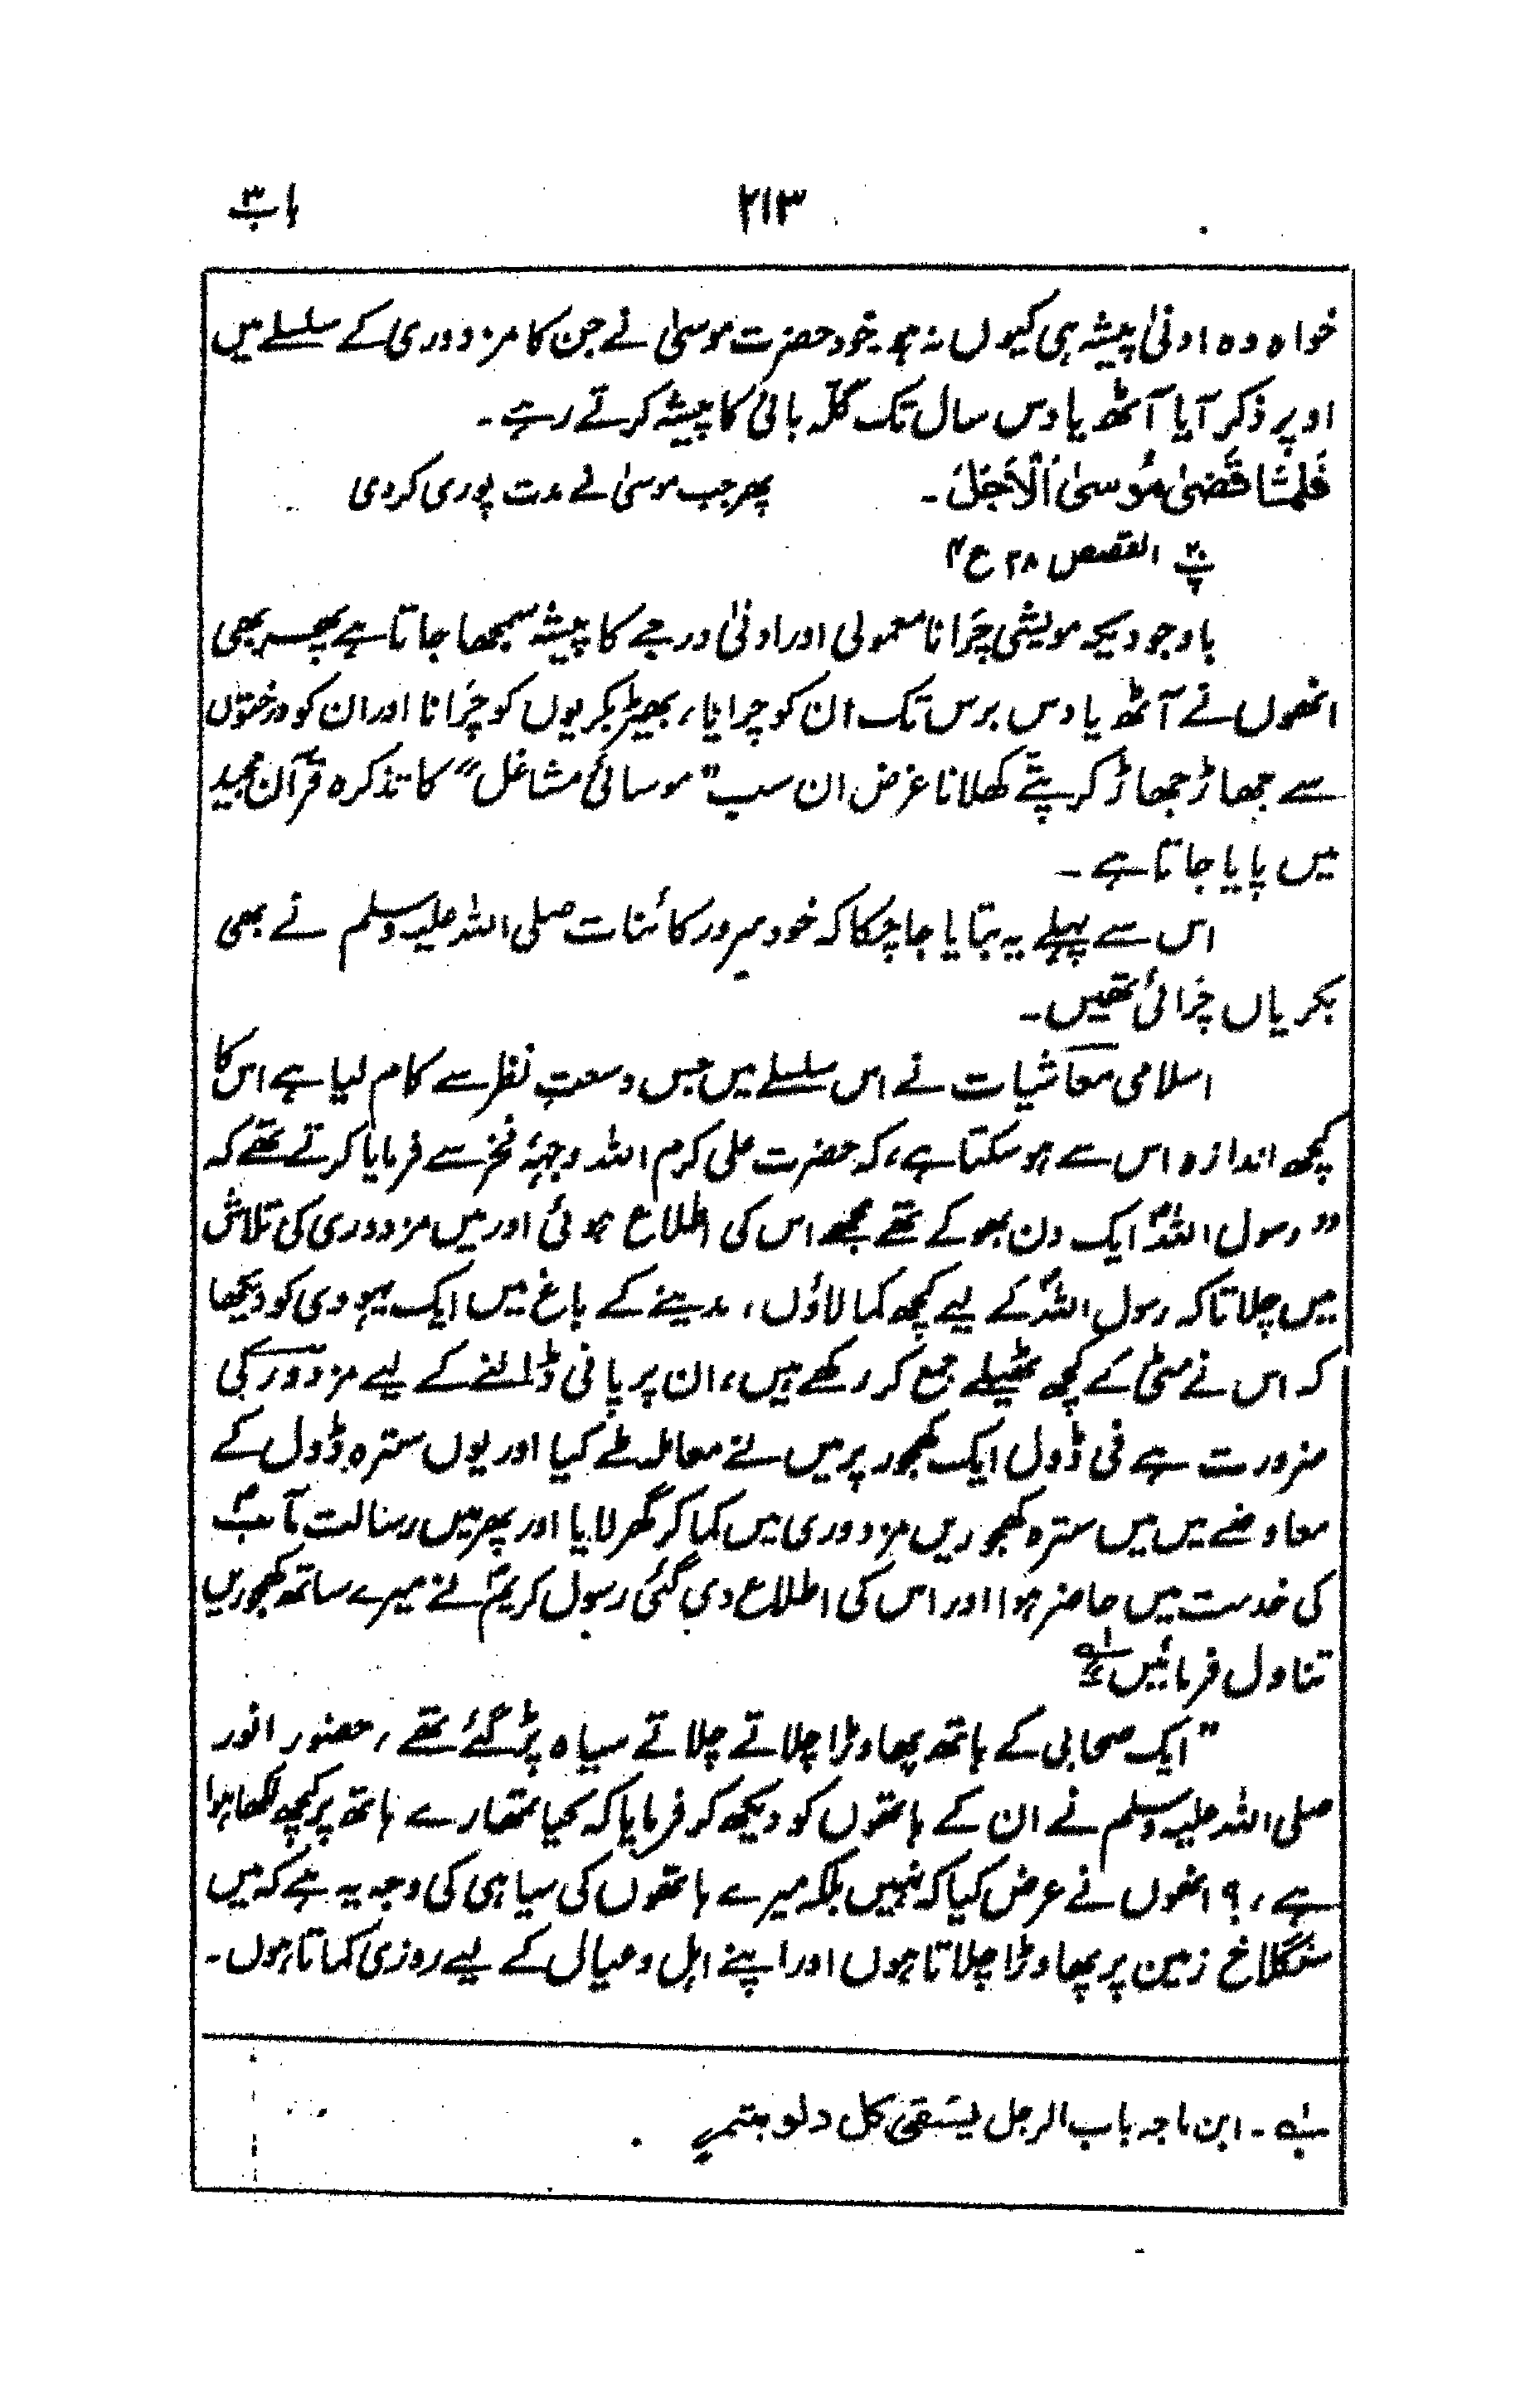 باب ۳
۲۱۳
خواہ وہ ادنیٰ پیشہ ہی کیوں نہ ہو۔ خود حضرت موسیٰ نے جن کا مزدوری کے سلسلے میں
اوپر ذکر آیا آٹھ یا دس سال تک گلّہ بانی کا پیشہ کرتے رہے۔
فَلَمَّا قَضیٰ مُوسیٰ اَلْاَجَلَ۔
پھر جب موسیٰ نے مدت پوری کردی
پ۲۰ القصص ۲۸ ع ۴
باوجودیکہ مویشی چَرانا معمولی اور ادنیٰ درجے کا پیشہ سمجھا جاتا ہے پھر بھی
انھوں نے آٹھ یا دس برس تک ان کو چرایا، بھیڑ بکریوں کو چَرانا اور ان کو درختوں
سے جھاڑ جھاڑ کر پتّے کھلانا غرض ان سب "موسائی مشاغل" کا تذکرہ قرآن مجید
میں پایا جاتا ہے۔
اس سے پہلے یہ بتایا جاچکا کہ خود سرور کائنات صلی اللہ علیہ وسلم نے بھی
بکریاں چَرائی تھیں۔
اسلامی معاشیات نے اس سلسلے میں جس وسعتِ نظر سے کام لیا ہے اس کا
کچھ اندازہ اس سے ہوسکتا ہے، کہ حضرت علی کرم اللہ وجہہٗ فخر سے فرمایا کرتے تھے کہ
"رسول اللہؐ ایک دن بھوکے تھے مجھے اس کی اطلاع ہوئی اور میں مزدوری کی تلاش
میں چلا تاکہ رسول اللہؐ کے لیے کچھ کما لاؤں، مدینے کے باغ میں ایک یہودی کو دیکھا
کہ اس نے مٹی کے کچھ ٹھیلے جمع کر رکھے ہیں، ان پر پانی ڈالنے کے لیے مزدور کی
ضرورت ہے فی ڈول ایک کھجور پر میں نے معاملہ طے کیا اور یوں سترہ ڈول کے
معاوضے میں میں سترہ کھجوریں مزدوری میں کما کر گھر لایا اور پھر میں رسالت مآبؐ
کی خدمت میں حاضر ہوا اور اس کی اطلاع دی گئی رسول کریمؐ نے میرے ساتھ کھجوریں
تناول فرمائیں"۱
"ایک صحابی کے ہاتھ پھاوڑا چلاتے چلاتے سیاہ پڑ گئے تھے، حضور انور
صلی اللہ علیہ وسلم نے ان کے ہاتھوں کو دیکھ کر فرمایا کہ کیا تمھارے ہاتھ پر کچھ لکھا ہوا
ہے،؟ انھوں نے عرض کیا کہ نہیں بلکہ میرے ہاتھوں کی سیاہی کی وجہ یہ ہے کہ میں
سنگلاخ زمین پر پھاوڑا چلاتا ہوں اور اپنے اہل و عیال کے لیے روزی کماتا ہوں۔
۱۔ ابن ماجہ باب الرجل یستقی کل دلو بتمرۃ